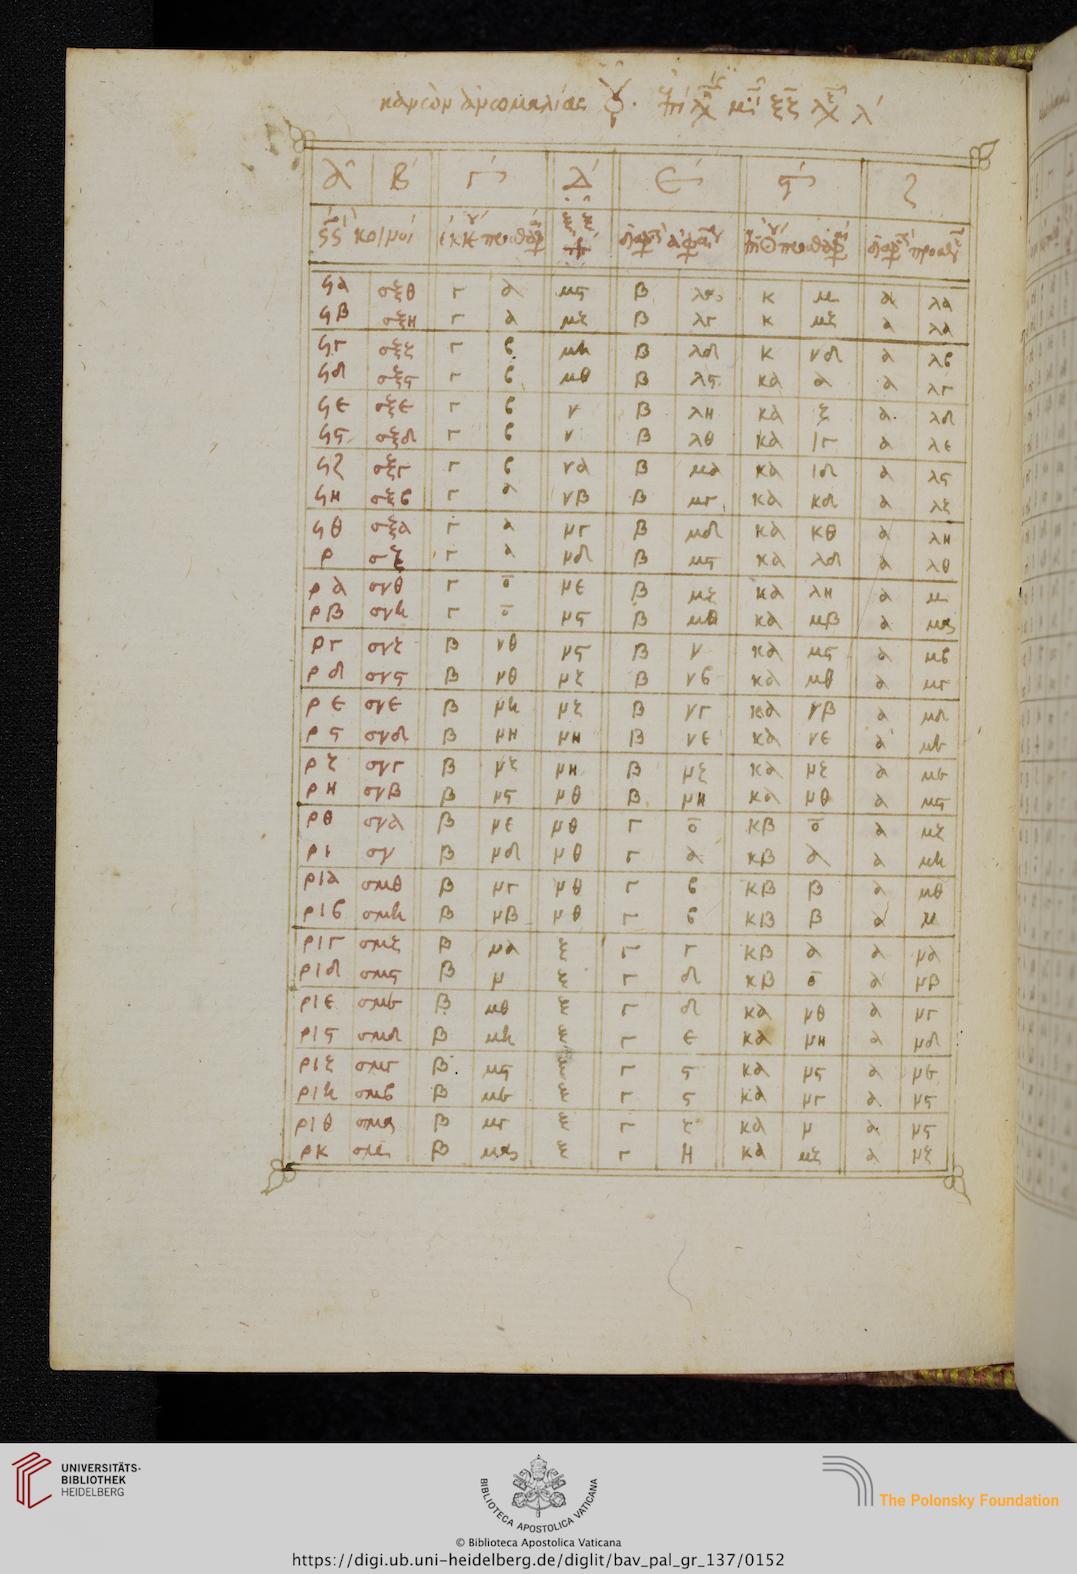 κανὼν ἀνωμαλίας
α β γ δ ε ϛ ζ
κοινοί
ϟα σξθ γ α μϛ β λα κ μ α λα
ϟβ σξη γ α μζ β λγ κ μζ α λα
ϟγ σξζ γ β μη β λδ κ νδ α λβ
ϟδ σξϛ γ β μθ β λϛ κα α α λγ
ϟε σξε γ β ν β λη κα ζ α λδ
ϟϛ σξδ γ β ν β λθ κα ιγ α λε
ϟζ σξγ γ β να β μα κα ιδ α λϛ
ϟη σξβ γ α νβ β μγ κα κδ α λζ
ϟθ σξα γ α νγ β μδ κα κθ α λη
ρ σξ γ α νδ β μϛ κα λδ α λθ
ρα σνθ γ ο νε β μζ κα λη α μ
ρβ σνη γ ο νϛ β μθ κα μβ α μα
ργ σνζ β νθ νϛ β ν κα μϛ α μβ
ρδ σνϛ β νθ νζ β νβ κα μθ α μγ
ρε σνε β νη νζ β νγ κα νβ α μδ
ρϛ σνδ β νη νη β νε κα νε α με
ρζ σνγ β νζ νη β νζ κα νζ α με
ρη σνβ β νϛ νθ β νη κα νθ α μϛ
ρθ σνα β νε νθ γ ο κβ ο α μζ
ρι σν β νδ νθ γ α κβ α α μη
ρια σμθ β νγ νθ γ β κβ β α μθ
ριβ σμη β νβ νθ γ β κβ β α ν
ριγ σμζ β να ξ γ γ κβ α α να
ριδ σμϛ β ν ξ γ δ κβ ο α νβ
ριε σμε β μθ ξ γ δ κα νθ α νγ
ριϛ σμδ β μη ξ γ ε κα νη α νδ
ριζ σμγ β μϛ ξ γ ϛ κα νϛ α νε
ριη σμβ β με ξ γ ϛ κα νγ α νϛ
ριθ σμα β μγ ξ γ ζ κα ν α νϛ
ρκ σμ β μα ξ γ η κα μζ α νζ
UNIVERSITÄTS-
BIBLIOTHEK
HEIDELBERG
BIBLIOTECA APOSTOLICA VATICANA
The Polonsky Foundation
© Biblioteca Apostolica Vaticana
https://digi.ub.uni-heidelberg.de/diglit/bav_pal_gr_137/0152